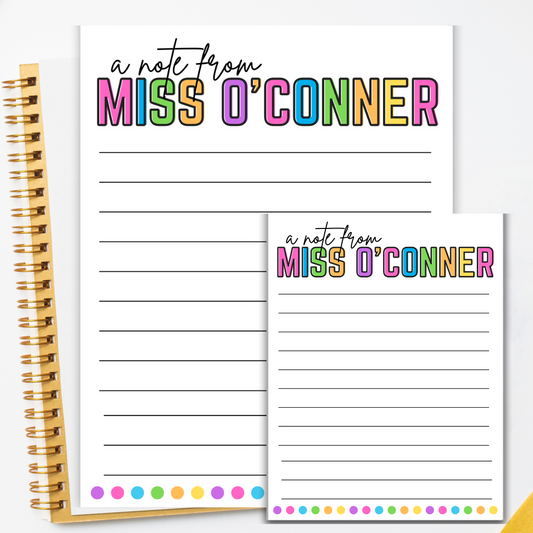 a note from
MISS O'CONNER
a note from
MISS O'CONNER